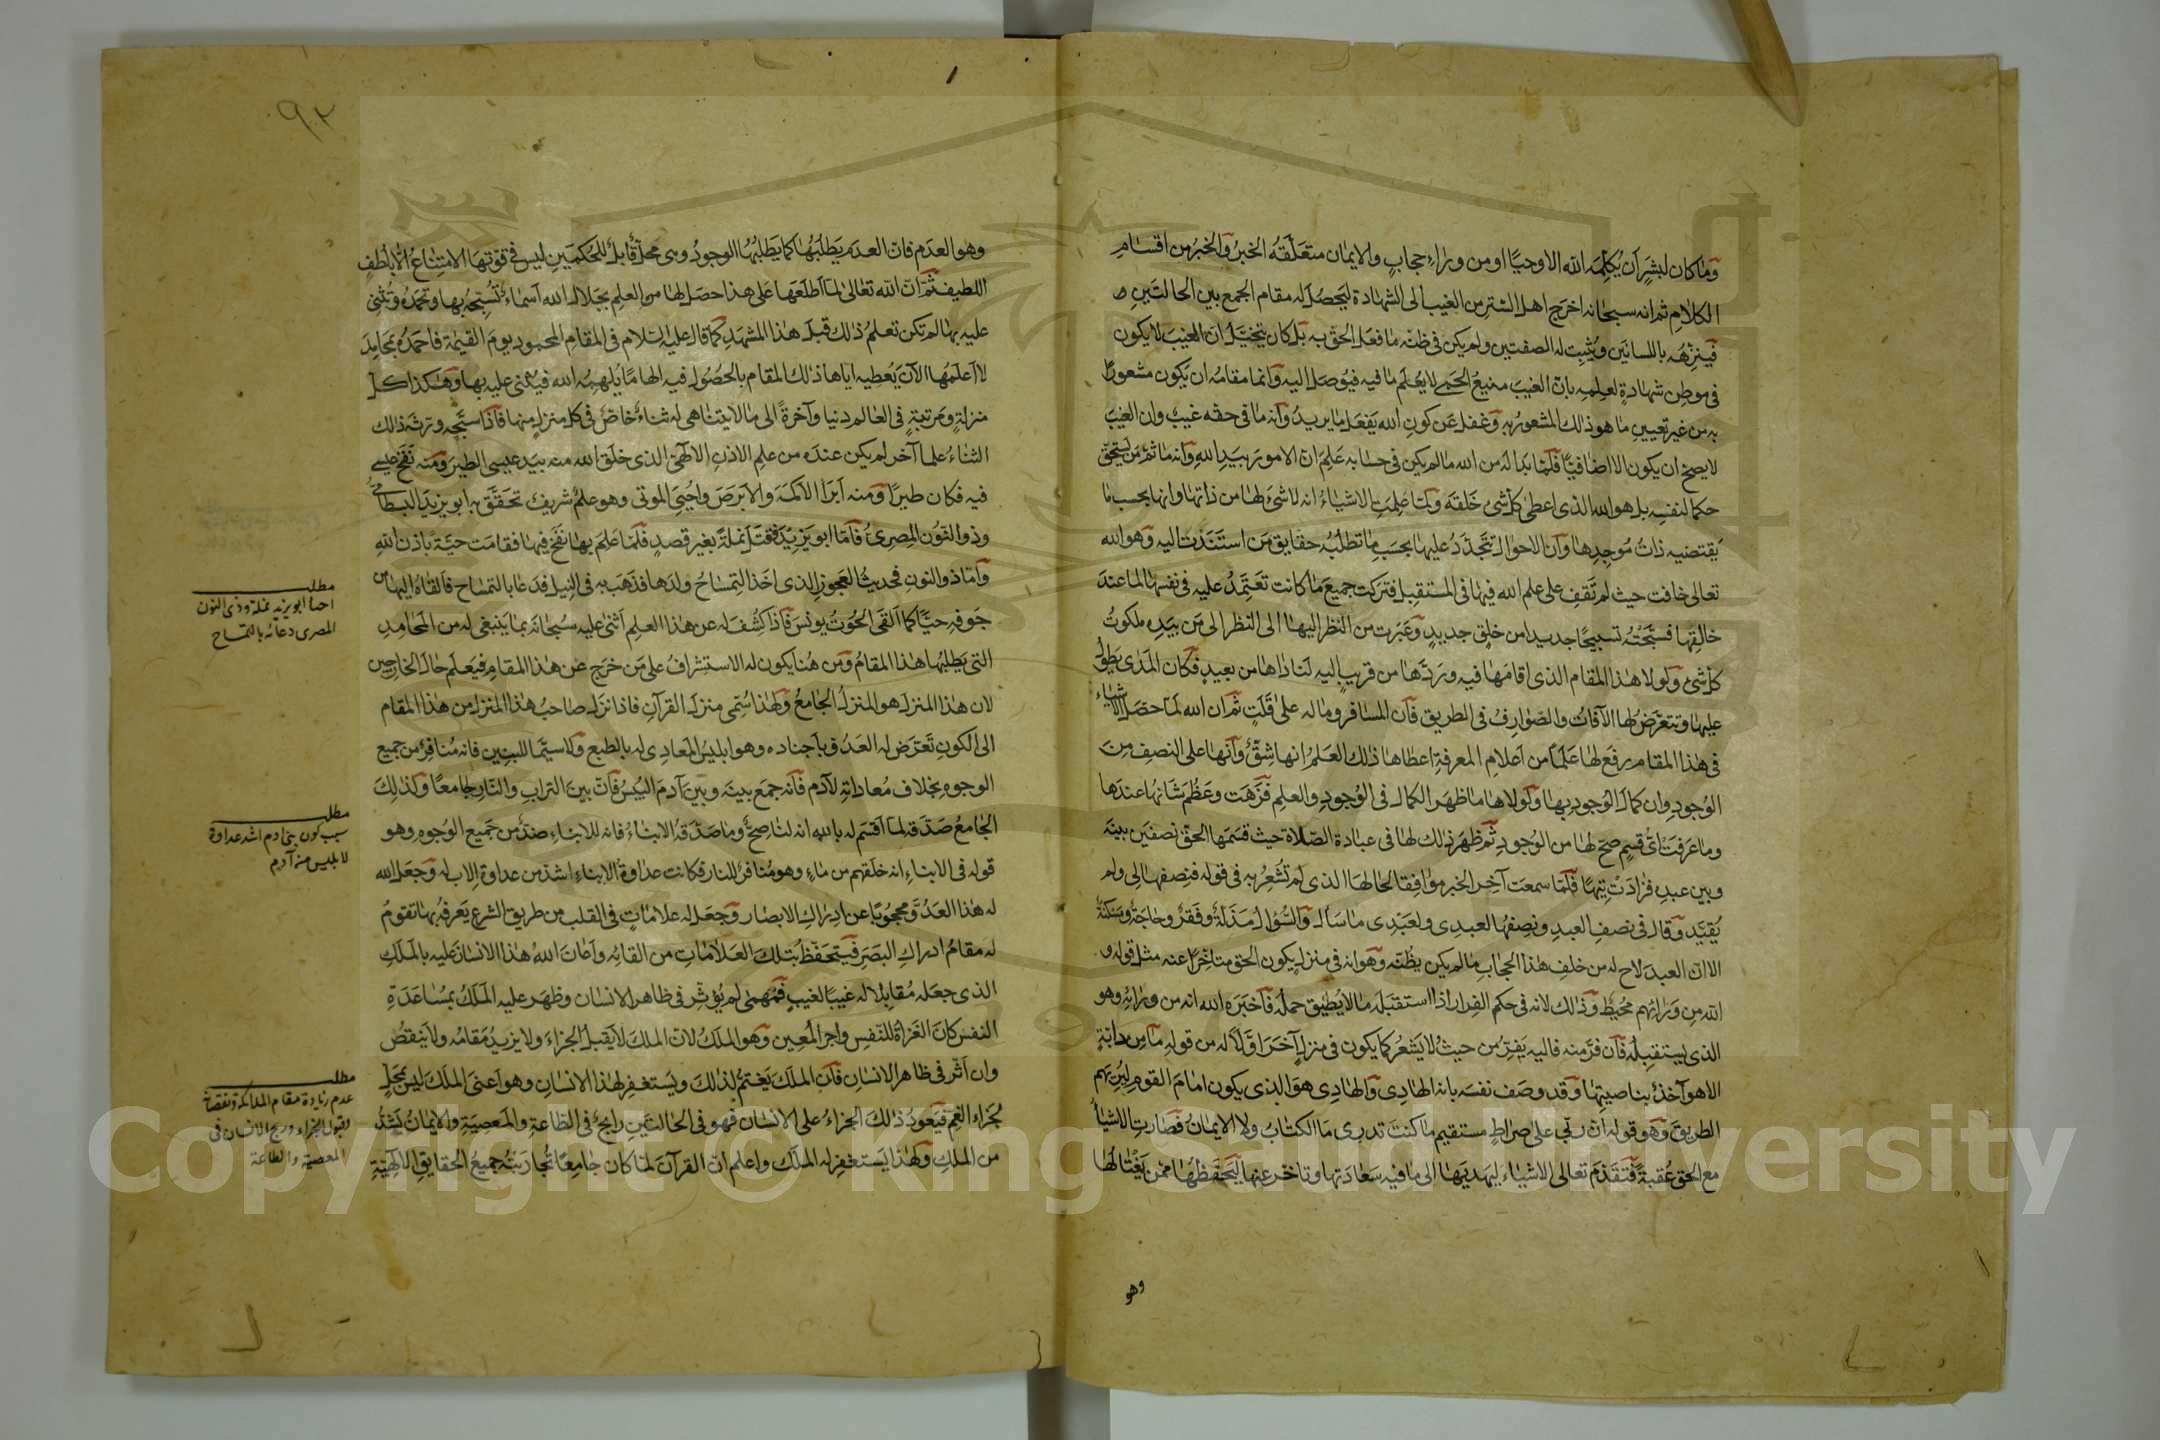 وما كان لبشر أن يكلمه الله الا وحيا او من وراء حجاب والايمان متعلقه الخبر والخبر من اقسام
الكلام ثم انه سبحانه اخرج اهل الستر من الغيب الى الشهادة ليحصل له مقام الجمع بين الحالتين
فينزهه باللسانين ويثبت له الصفتين ولم يكن في ظنه ما فعل الحق به بل كان يتخيل ان الغيب لا يكون
في موطن شهادة لعلمه بان الغيب منيع الحمى لا يعلم ما فيه فيوصل اليه وانما مقامه ان يكون مشعورا
به من غير تعيين ما هو ذلك المشعور به وغفل عن كون الله يفعل ما يريد وانه ما في حقه غيب وان الغيب
لا يصح ان يكون الا اضافيا فلما بدا له من الله ما لم يكن في حسابه علم ان الامور بيد الله وانه ما ثم من يستحق
حكما لنفسه بل هو الله الذي اعطى كل شئ خلقه ولما علمت الاشياء انه لا شئ لها من ذاتها وانها بحسب ما
يقتضيه ذات موجدها وان الاحوال تتجدد عليها بحسب ما تطلبه حقايق من استندت اليه وهو الله
تعالى خافت حيث لم تقف على علم الله فيها في المستقبل فتركت جميع ما كانت تعتمد عليه في نفسها لما عند
خالقها فسبحته تسبيحا جديدا من خلق جديد وعبرت من النظر اليها الى النظر الى من بيده ملكوت
كل شئ ولولا هذا المقام الذي اقامها فيه وردها من قريب اليه لناداها من بعيد فكان المدى يطول
عليها وتتعرض لها الآفات والصوارف في الطريق فان المسافر وماله على قلت ثم ان الله لما حصل الاشياء
في هذا المقام رفع لها علما من اعلام المعرفة اعطاها ذلك العلم انها شق وانها على النصف من
الوجود وان كمال الوجود بها ولولاها ما ظهر الكمال في الوجود والعلم فزهت وعظم شانها عندها
وما عرفت أي قسم صح لها من الوجود ثم ظهر ذلك لها في عبادة الصلاة حيث قسمها الحق نصفين بينه
وبين عبده فزادت تيها فلما سمعت آخر الخبر موافقا لحالها الذي لم تشعر به في قوله فنصفها لي ولم
يقيد وقال في نصف العبد ونصفها لعبدي ولعبدي ما سأل والسؤال مذلة وفقر وحاجة ومسكنة
الا ان العبد لاح له من خلف هذا الحجاب ما لم يكن يظنه وهو انه في منزل يكون الحق متاخرا عنه مثل قوله و
الله من ورائهم محيط وذلك لانه في حكم الفرار اذا استقبله ما لا يطيق حمله فاخبره الله انه من ورائه وهو
الذي يستقبله فان فر منه فاليه يفر من حيث لا يشعر كما يكون في منزل آخر اولا له من قوله ما من دابة
الا هو آخذ بناصيتها وقد وصف نفسه بانه الهادي والهادي هو الذي يكون امام القوم ليريهم
الطريق وهو قوله ان ربي على صراط مستقيم ما كنت تدري ما الكتاب ولا الايمان فصارت الاشياء
مع الحق عقبة فتقدم تعالى الاشياء ليهديها الى ما فيه سعادتها وتاخر عنها ليحفظها ممن يغتالها
وهو
٩٢
وهو العدم فان العدم يطلبها كما يطلبها الوجود وهي محل قابل للحكمين ليس في قوتها الامتناع الا بلطف
اللطيف ثم ان الله تعالى لما اطلعها على هذا حصل لها من العلم بجلال الله اسماء تسبحه بها وتحمده وتثني
عليه بها لم تكن تعلم ذلك قبل هذا المشهد كما قال عليه السلام في المقام المحمود يوم القيمة فاحمده بمحامد
لا اعلمها الآن يعطيه اياها ذلك المقام بالحصول فيه الهاما يلهمه الله فيثني عليه بها وهكذا كل
منزلة ومرتبة في العالم دنيا وآخرة الى ما لا يتناهى له ثناء خاص في كل منزل منها فاذا سبحه ورثه ذلك
الثناء علما آخر لم يكن عنده من علم الاذن الالهي الذي خلق الله منه بيد عيسى الطير ومنه نفخ عيسى
فيه فكان طيرا ومنه ابرأ الاكمه والابرص واحيى الموتى وهو علم شريف تحقق به ابو يزيد البسطامي
وذو النون المصري فاما ابو يزيد فقتل نملة بغير قصد فلما علم بها نفخ فيها فقامت حية باذن الله
واما ذو النون فحديث العجوز الذي اخذ التمساح ولدها فذهب به في النيل فدعا بالتمساح فالقاه اليها من
جوفه حيا كما القى الحوت يونس فاذا كشف له عن هذا العلم اثنى عليه سبحانه بما ينبغي له من المحامد
التي يطلبها هذا المقام ومن هنا يكون له الاستشراف على من خرج عن هذا المقام فيعلم حال الخارجين
لان هذا المنزل هو المنزل الجامع ولهذا سمي منزل القرآن فاذا نزل صاحب هذا المنزل من هذا المقام
الى الكون تعرض له العدو باجناده وهو ابليس المعادي له بالطبع ولا سيما للبنين فانه منافر من جميع
الوجوه بخلاف معاداته لآدم فانه جمع بينه وبين آدم اليبس فان بين التراب والنار جامعا ولذلك
الجامع صدقه لما اقسم له بالله انه لناصح وما صدقه الابناء فانه للابناء ضد من جميع الوجوه وهو
قوله في الابناء انه خلقهم من ماء وهو منافر للنار فكانت عداوة الابناء اشد من عداوة الاب له وجعل الله
له هذا العدو محجوبا عن ادراك الابصار وجعل له علامات في القلب من طريق الشرع يعرفه بها تقوم
له مقام ادراك البصر فيتحفظ بتلك العلامات من القائه واعان الله هذا الانسان عليه بالملك
الذي جعله مقابلا له غيبا لغيب فمهمى لم يؤثر في ظاهر الانسان وظهر عليه الملك بمساعدة
النفس كان الغزاة للنفس واجر المعين وهو الملك لان الملك لا يقبل الجزاء ولا يزيد مقامه ولا ينقص
وان اثر في ظاهر الانسان فان الملك يغتم لذلك ويستغفر لهذا الانسان وهو اعني الملك ليس بمحل
لجزاء الغم فيعود ذلك الجزاء على الانسان فهو في الحالتين رابح في الطاعة والمعصية والايمان يشد
من الملك ولهذا يستغفر له الملك واعلم ان القرآن لما كان جامعا تجاذبته جميع الحقايق الالهية
مطلب
احياء ابو يزيد نملة وذي النون
المصري دعائه بالتمساح
مطلب
سبب كون بني ادم اشد عداوة
لابليس من آدم
مطلب
عدم زيادة مقام الملائكة ونقصان
وقبول الجزاء وربح الانسان في
المعصية والطاعة
Copyright © King Saud University